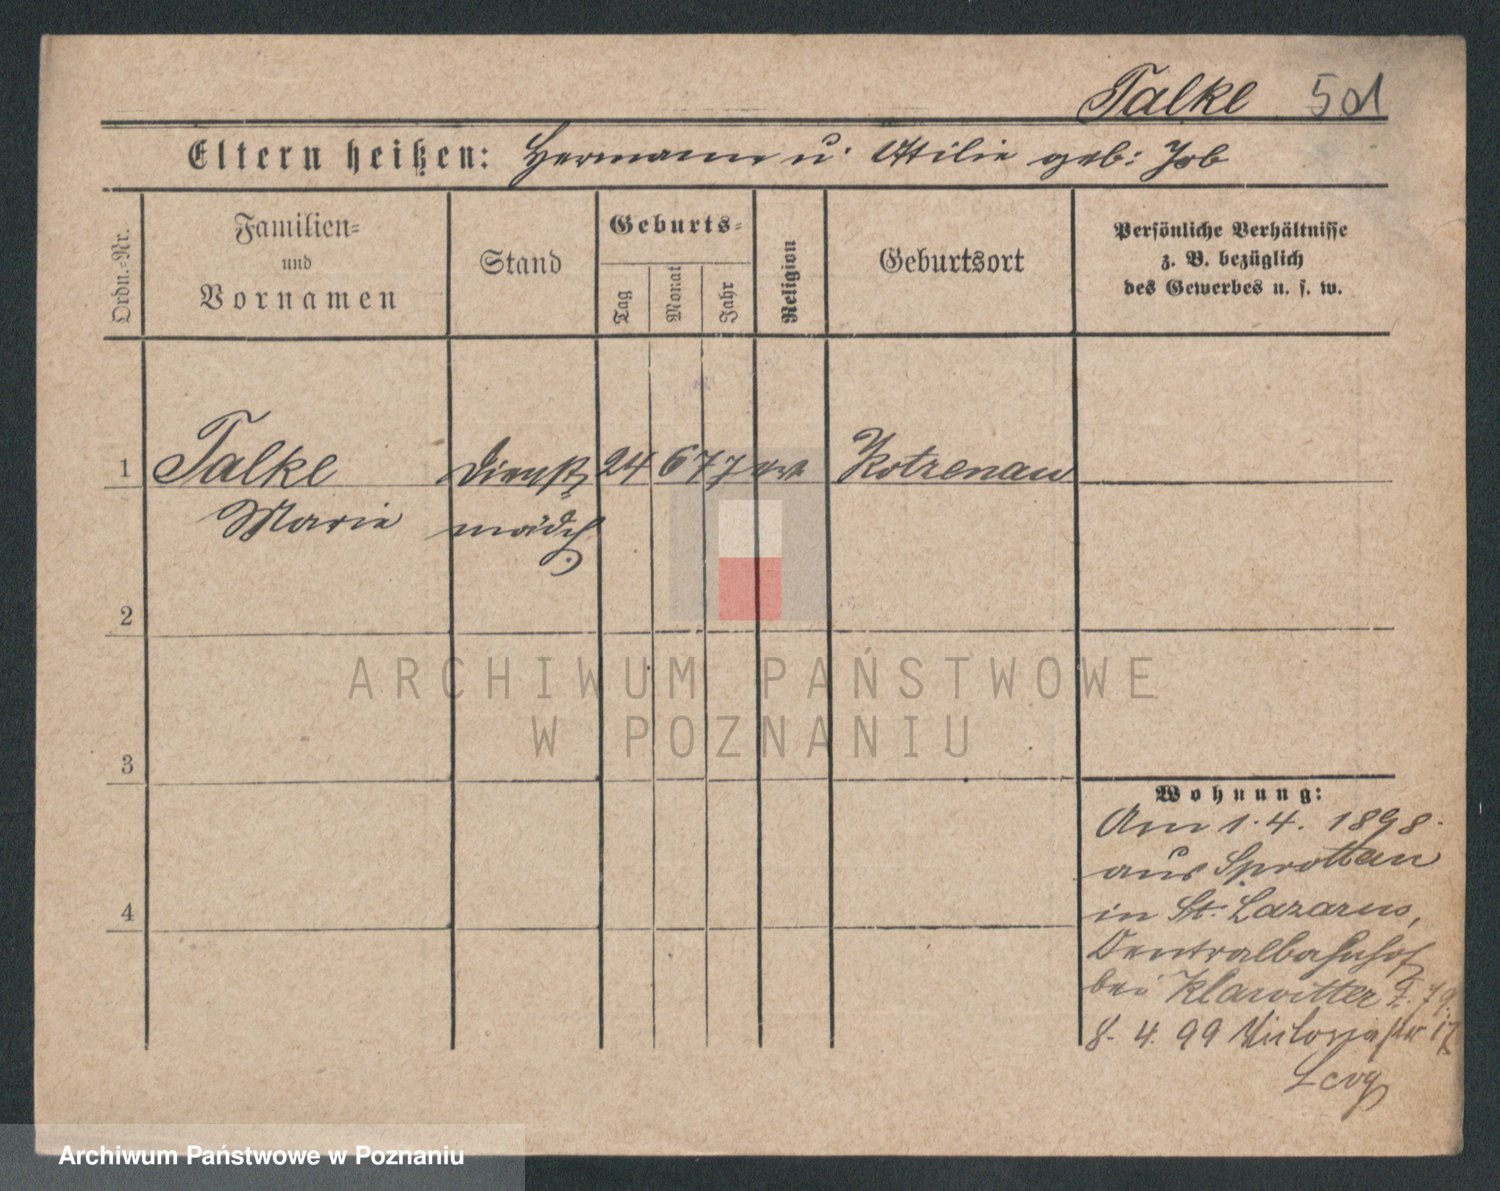 Talke 5d
Eltern heißen: Hermann u. Ottilie geb: Job
Ordn.-Nr.
Familien-
und
Vornamen
Stand
Geburts-
Tag
Monat
Jahr
Religion
Geburtsort
Persönliche Verhältnisse
z. B. bezüglich
des Gewerbes u. s. w.
1 Talke Dienst 24 6 77 Kotzenau
Marie mädch.
2
3
4
Wohnung:
Am 1.4. 1898.
aus Sprottau
in St. Lazarus,
Centralbahnhof
bei Klawitter
8. 4. 99 Victoriastr 17
ARCHIWUM PAŃSTWOWE
W POZNANIU
Archiwum Państwowe w Poznaniu